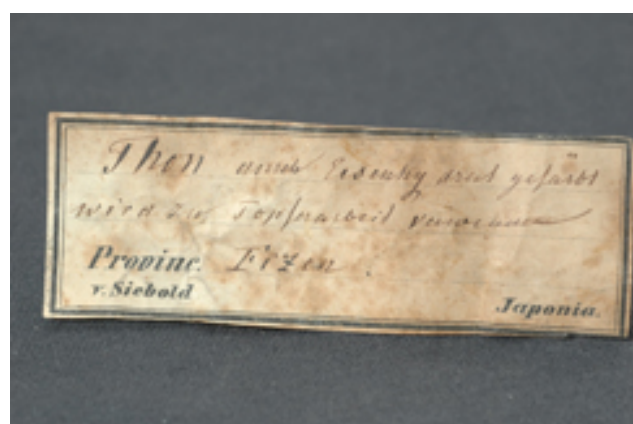 Thon durch Eisenhydrat gefärbt
wird zur Topferarbeit
Provinc. Fizen.
v. Siebold
Japonia.